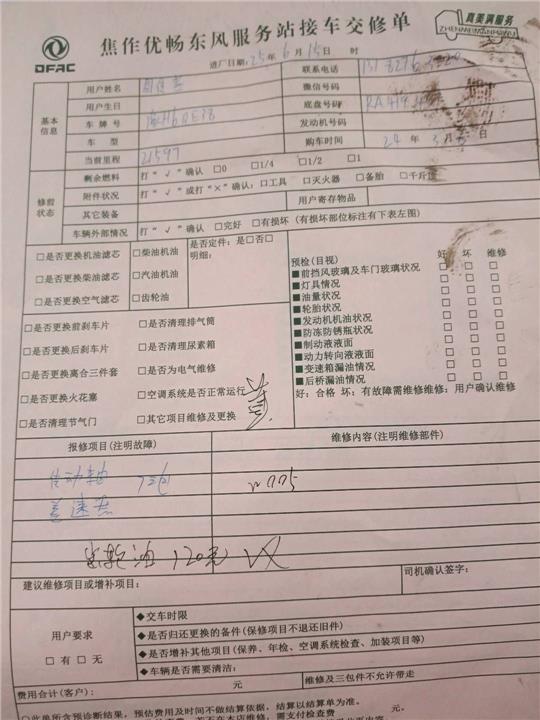 焦作优畅东风服务站接车交修单
真美满服务
ZHENMEIMANFUWU
DFAC
进厂日期: 25 年 6 月 15 日 时
基本信息
用户姓名
联系电话
用户生日
微信号码
车牌号
底盘号码
车型
发动机号码
当前里程 21597
购车时间 24 年 3 月 日
修前状态
剩余燃料 打“√”确认 □0 □1/4 □1/2 □1
附件状况 打“√”或打“×”确认: □工具 □灭火器 □备胎 □千斤顶
其它装备 用户寄存物品
车辆外部情况 打“√”确认 □完好 □有损坏 (有损坏部位标注有下表左图)
□是否更换机油滤芯 □柴油机油 是否定件: 是□否□
明细:
□是否更换柴油滤芯 □汽油机油
□是否更换空气滤芯 □齿轮油
预检(目视) 好 坏 维修
■前挡风玻璃及车门玻璃状况 □ □ □
■灯具情况 □ □ □
■油量状况 □ □ □
■轮胎状况 □ □ □
■发动机机油状况 □ □ □
■防冻防锈瓶状况 □ □ □
■制动液液面 □ □ □
■动力转向液液面 □ □ □
■变速箱漏油情况 □ □ □
■后桥漏油情况 □ □ □
好: 合格 坏: 有故障需维修维修: 用户确认维修
□是否更换前刹车片 □是否清理排气筒
□是否更换后刹车片 □是否清理尿素箱
□是否更换离合三件套 □是否为电气维修
□是否更换火花塞 □空调系统是否正常运行
□是否清理节气门 □其它项目维修及更换
报修项目(注明故障) 维修内容(注明维修部件)
传动轴 三包
差速器
齿轮油 120元 VX
建议维修项目或增补项目:
司机确认签字:
用户要求
□有 □无
◆交车时限
◆是否归还更换的备件(保修项目不退还旧件)
◆是否增补其他项目(保养、年检、空调系统检查、加装项目等)
◆车辆是否需要清洁:
费用合计(客户): 元 维修及三包件不允许带走
□此单所含预诊断结果, 预估费用及时间不做结算依据, 结算以结算单为准。
需支付检查费 元。